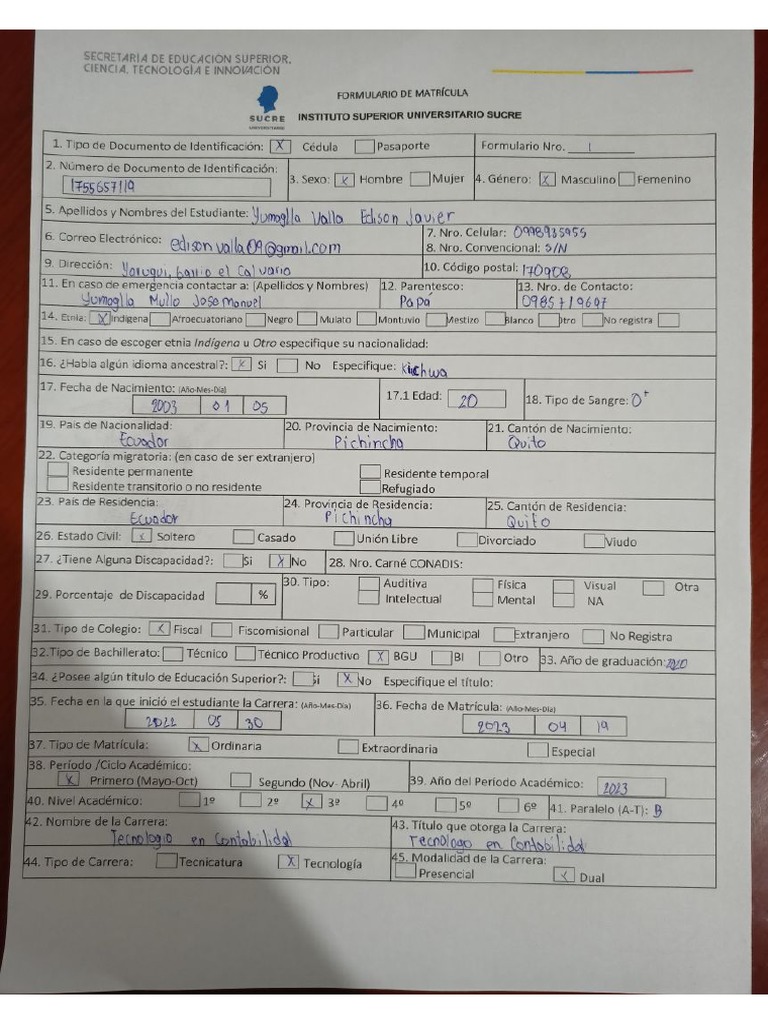 SECRETARÍA DE EDUCACIÓN SUPERIOR,
CIENCIA, TECNOLOGÍA E INNOVACIÓN
FORMULARIO DE MATRÍCULA
SUCRE
UNIVERSITARIO
INSTITUTO SUPERIOR UNIVERSITARIO SUCRE
1. Tipo de Documento de Identificación: X Cédula Pasaporte Formulario Nro. 1
2. Número de Documento de Identificación: 1755657119
3. Sexo: X Hombre Mujer 4. Género: X Masculino Femenino
5. Apellidos y Nombres del Estudiante: Yumaglla Valla Edison Javier
6. Correo Electrónico: edisonvalla09@gmail.com
7. Nro. Celular: 0998935955
8. Nro. Convencional: S/N
9. Dirección: Yaruqui, barrio el Calvario
10. Código postal: 170908
11. En caso de emergencia contactar a: (Apellidos y Nombres) 12. Parentesco: 13. Nro. de Contacto:
Yumaglla Mullo Jose Manuel Papá 0985719697
14. Etnia: X Indígena Afroecuatoriano Negro Mulato Montuvio Mestizo Blanco Otro No registra
15. En caso de escoger etnia Indígena u Otro especifique su nacionalidad:
16. ¿Habla algún idioma ancestral?: X Si No Especifique: kichwa
17. Fecha de Nacimiento: (Año-Mes-Día) 2003 01 05
17.1 Edad: 20 18. Tipo de Sangre: O+
19. País de Nacionalidad: 20. Provincia de Nacimiento: 21. Cantón de Nacimiento:
Ecuador Pichincha Quito
22. Categoría migratoria: (en caso de ser extranjero)
Residente permanente Residente temporal
Residente transitorio o no residente Refugiado
23. País de Residencia: 24. Provincia de Residencia: 25. Cantón de Residencia:
Ecuador Pichincha Quito
26. Estado Civil: X Soltero Casado Unión Libre Divorciado Viudo
27. ¿Tiene Alguna Discapacidad?: Si X No 28. Nro. Carné CONADIS:
29. Porcentaje de Discapacidad %
30. Tipo: Auditiva Física Visual Otra
Intelectual Mental NA
31. Tipo de Colegio: X Fiscal Fiscomisional Particular Municipal Extranjero No Registra
32. Tipo de Bachillerato: Técnico Técnico Productivo X BGU BI Otro 33. Año de graduación: 2020
34. ¿Posee algún título de Educación Superior?: Si X No Especifique el título:
35. Fecha en la que inició el estudiante la Carrera: (Año-Mes-Día) 36. Fecha de Matrícula: (Año-Mes-Día)
2022 05 30 2023 04 19
37. Tipo de Matrícula: X Ordinaria Extraordinaria Especial
38. Período /Ciclo Académico:
X Primero (Mayo-Oct) Segundo (Nov- Abril) 39. Año del Período Académico: 2023
40. Nivel Académico: 1º 2º X 3º 4º 5º 6º 41. Paralelo (A-T): B
42. Nombre de la Carrera: 43. Título que otorga la Carrera:
Tecnologio en Contabilidad Tecnologo en Contabilidad
44. Tipo de Carrera: Tecnicatura X Tecnología
45. Modalidad de la Carrera:
Presencial X Dual